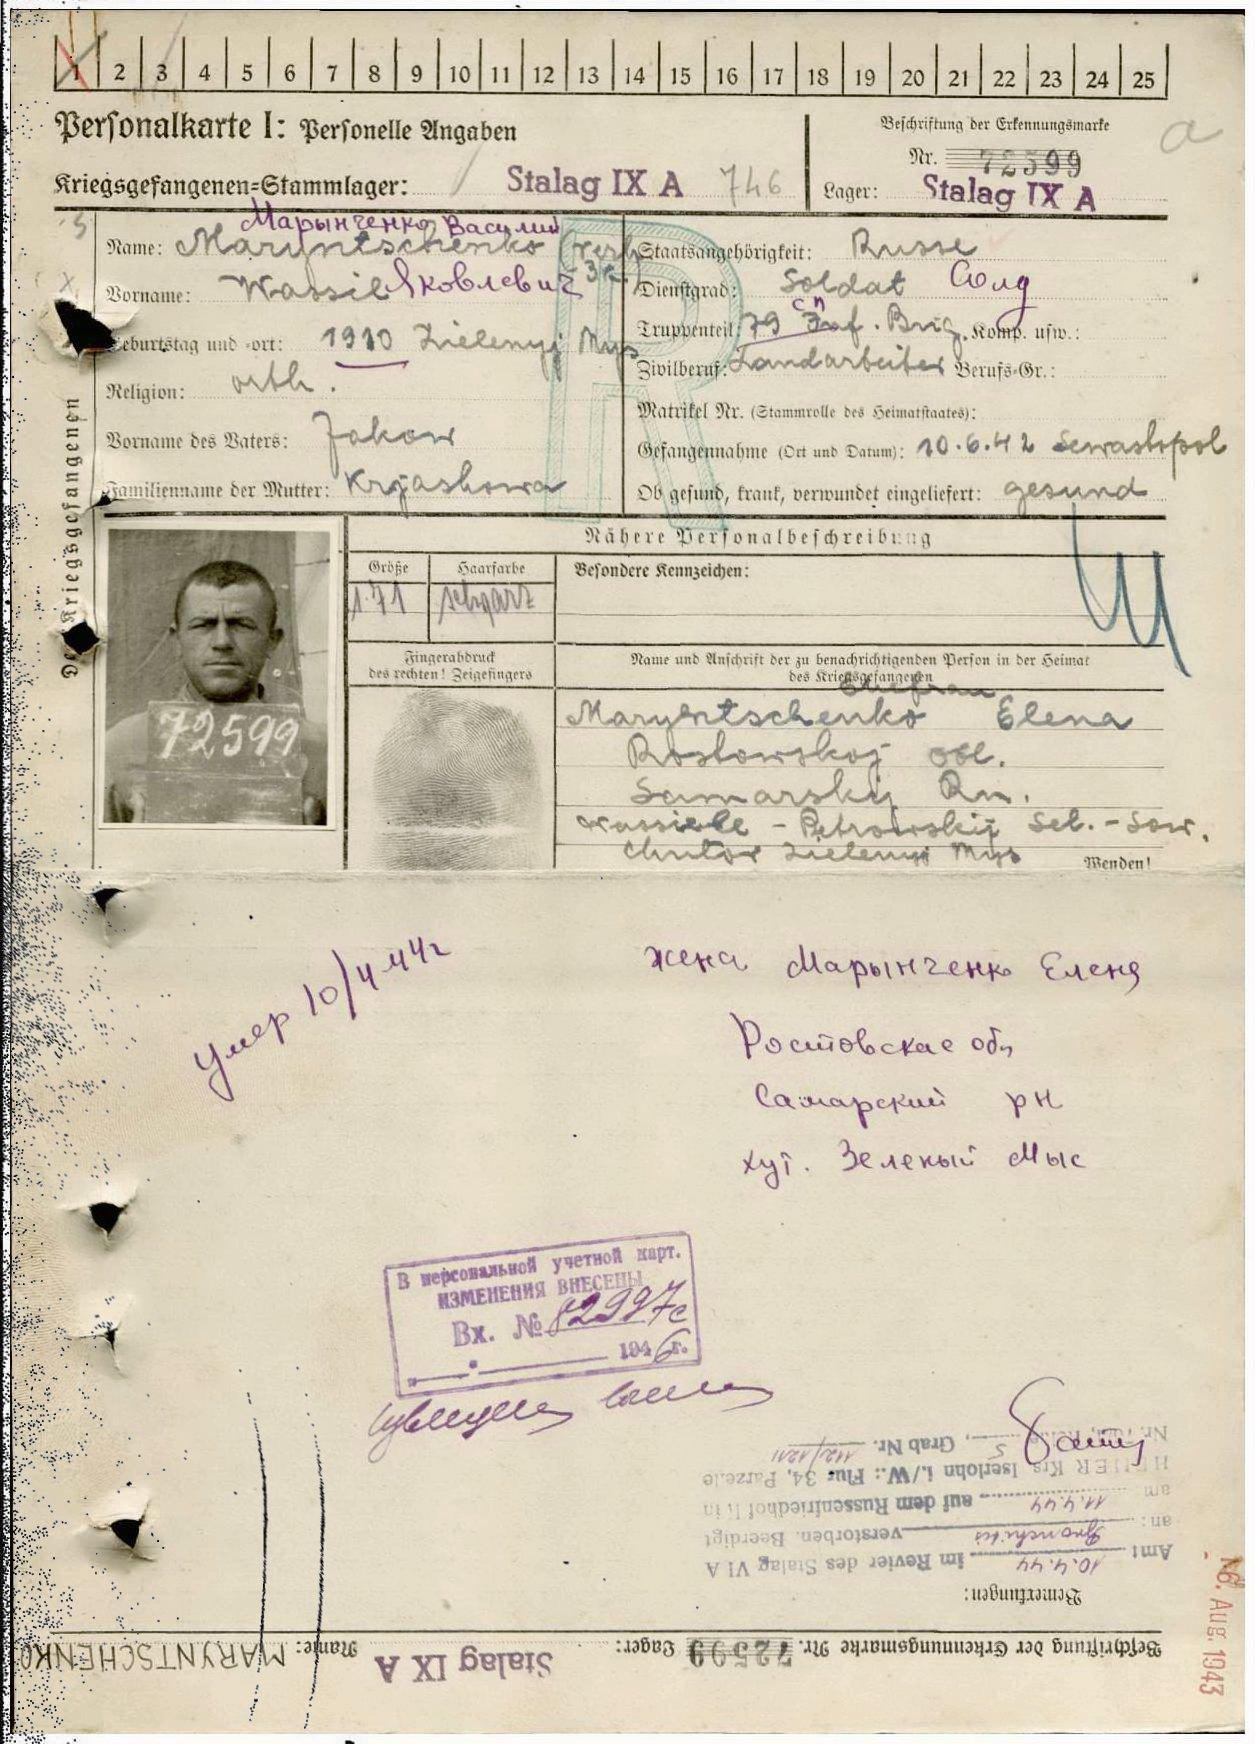 1 2 3 4 5 6 7 8 9 10 11 12 13 14 15 16 17 18 19 20 21 22 23 24 25
Personalkarte I: Personelle Angaben
Beschriftung der Erkennungsmarke
Nr. 72599
Kriegsgefangenen-Stammlager: Stalag IX A 746
Lager: Stalag IX A
Марынченко Василий
Name: Maryntschenko
Vorname: Wassil Яковлевич
Geburtstag und -ort: 1910 Zielenyj Mys
Religion: orth.
Vorname des Vaters: Jakow
Familienname der Mutter: Krjashowa
Staatsangehörigkeit: Russe
Dienstgrad: Soldat Солд
Truppenteil: 79 Inf. Brig. Komp. usw.:
Zivilberuf: Landarbeiter Berufs-Gr.:
Matrikel Nr. (Stammrolle des Heimatstaates):
Gefangennahme (Ort und Datum): 10.6.42 Sewastopol
Ob gesund, krank, verwundet eingeliefert: gesund
Des Kriegsgefangenen
Nähere Personalbeschreibung
Größe
Haarfarbe
Besondere Kennzeichen:
1.71
schwarz
72599
Fingerabdruck
des rechten! Zeigefingers
Name und Anschrift der zu benachrichtigenden Person in der Heimat
des Kriegsgefangenen
Ehefrau
Maryntschenko Elena
Rostowskoj obl.
Samarskij Rn.
Wassiele - Petrowskij Sel. - Sow.
Chutor Zielenyj Mys
Wenden!
умер 10/4 44г
жена Марынченко Елена
Ростовская обл
Самарский рн
хут. Зеленый Мыс
В персональной учетной карт.
ИЗМЕНЕНИЯ ВНЕСЕНЫ
Вх. № 82997с
1946г.
Beschriftung der Erkennungsmarke Nr. 72599 Lager: Stalag IX A Name: MARYNTSCHENKO
Bemerkungen:
Am: 10.4.44 im Revier des Stalag VI A
an: Bronchitis verstorben. Beerdigt
am 11.4.44 auf dem Russenfriedhof in
HEMER Krs. Iserlohn i./W.: Flur 34, Parzelle
5, Grab Nr.
16. Aug. 1943